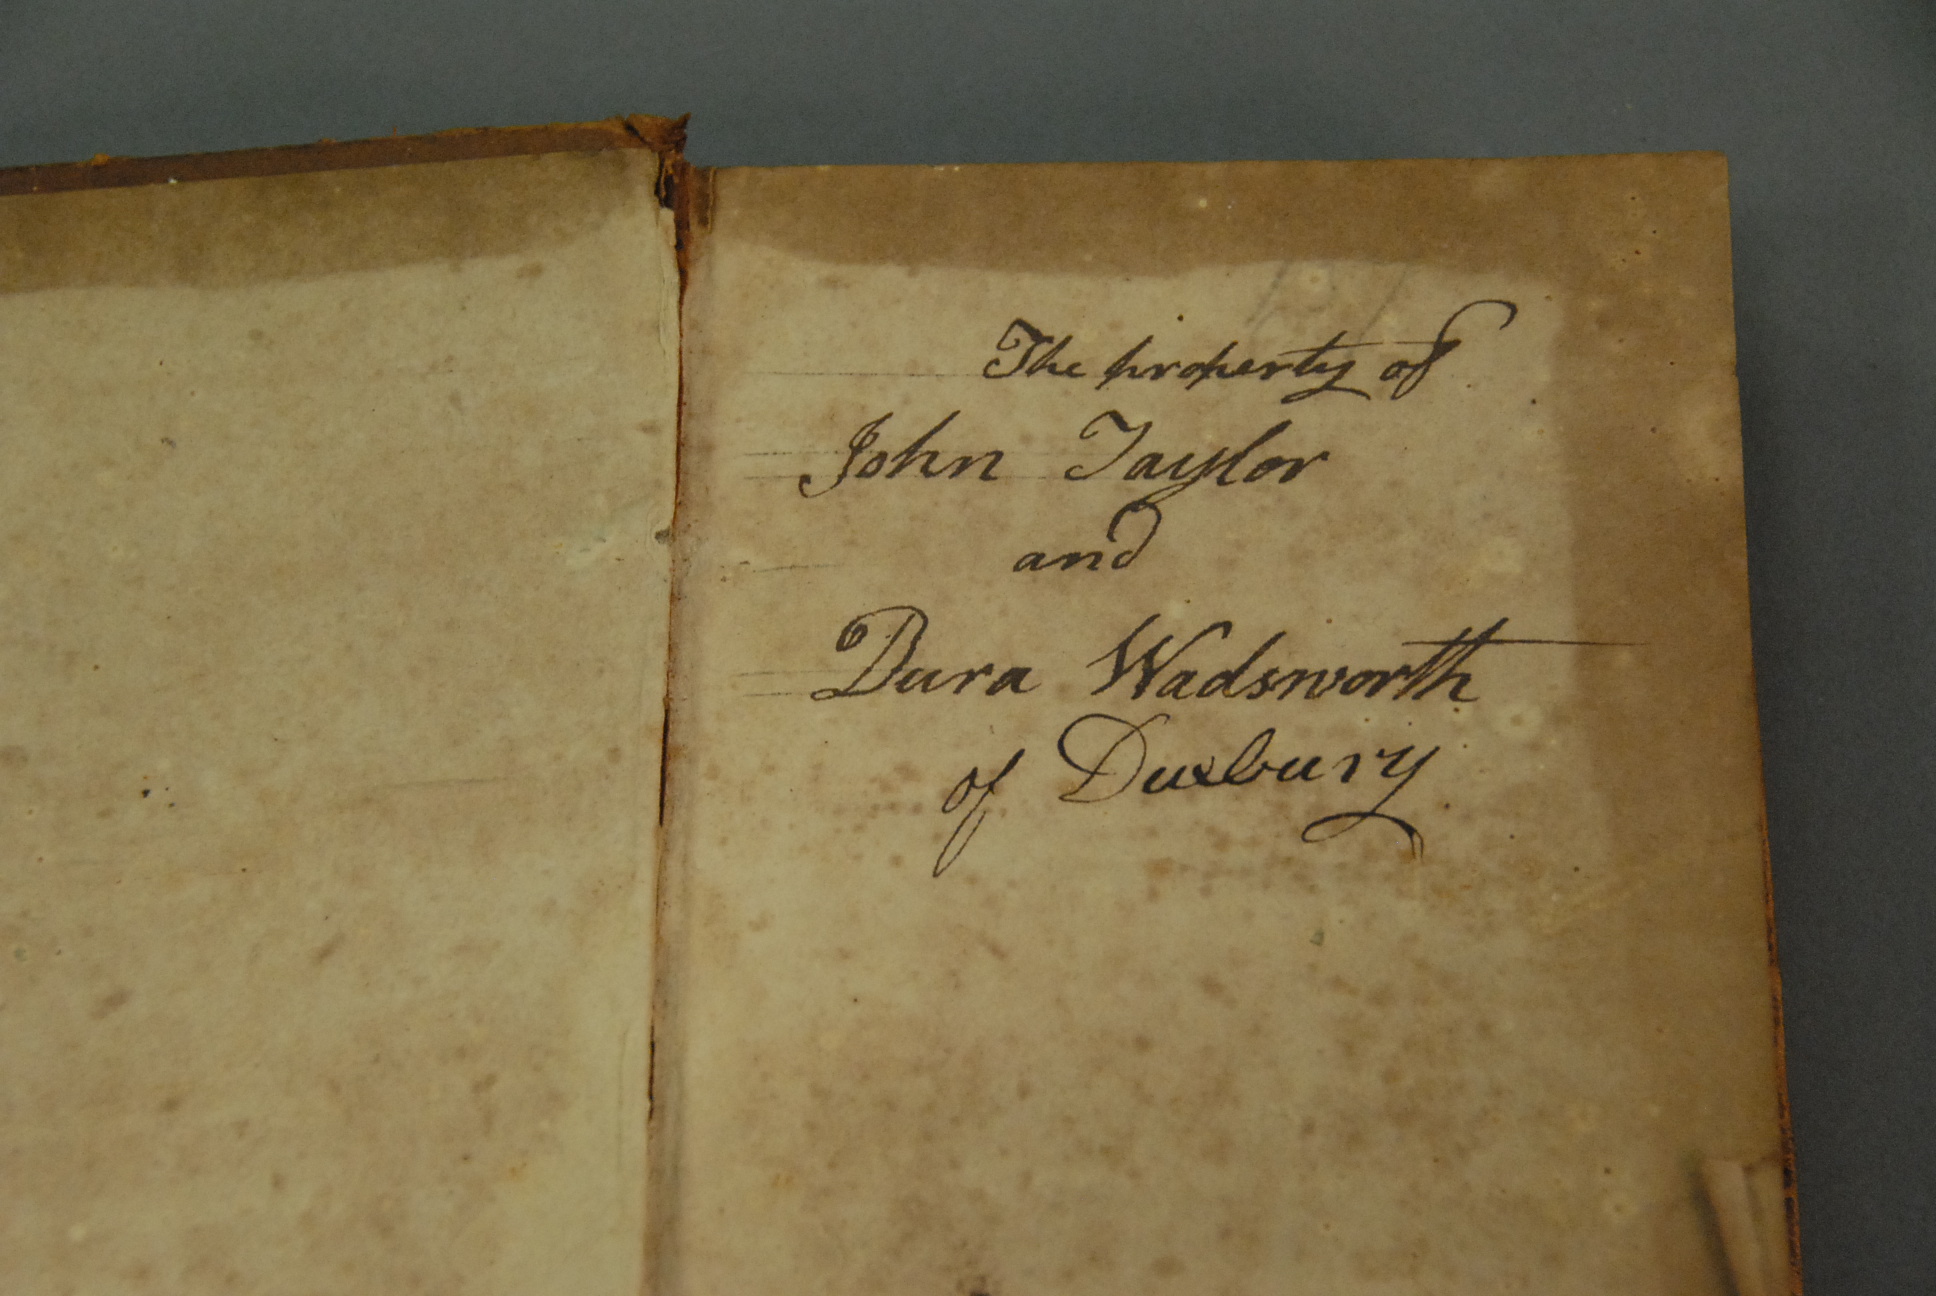 The property of
John Taylor
and
Dura Wadsworth
of Duxbury